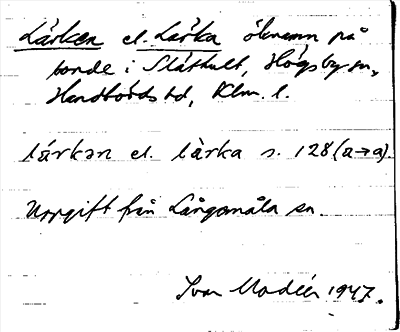 Lärken el. Lärka öknamn på
bonde i Slåthult, Högsby sn,
Handbörds hd, Klm. l.
lärkən el. lärka s. 128 (a→a).
Uppgift från Långemåla sn.
Ivar Modéer 1947.